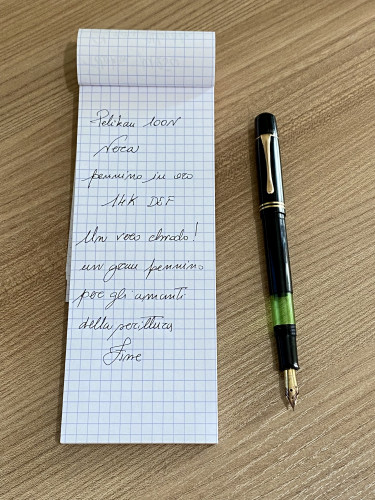 Pelikan 100N
Nera
pennino in oro
14K DEF
Un vero chiodo!
un gran pennino
per gli amanti
della scrittura
Fine